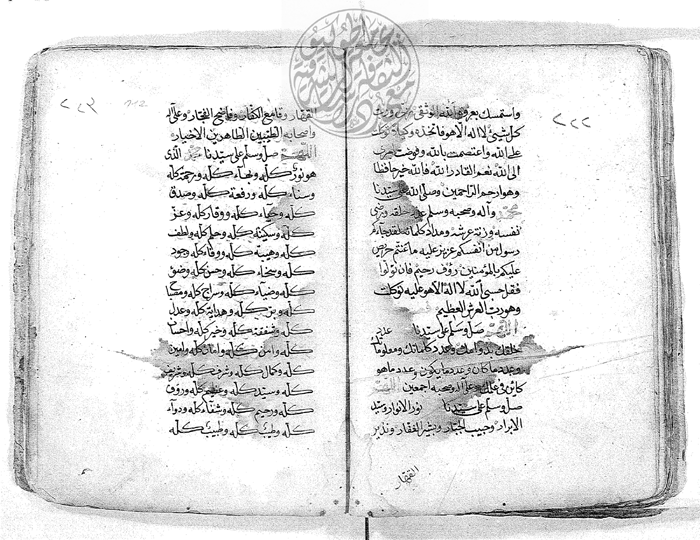 ٢٢٢
واستمسك بعروة الله الوثقى
كل شيئ لا اله الا هو فاتخذه وكيلا توكلت
على الله واعتصمت بالله وفوضت
الى الله نعم القادر الله فالله خير حافظا
وهو ارحم الراحمين وصلى الله على سيدنا
محمد وآله وصحبه وسلم عدد خلقه ورضى
نفسه وزنة عرشه ومداد كلماته لقد جآءكم
رسول من انفسكم عزيز عليه ما عنتم حريص
عليكم بالمؤمنين رؤف رحيم فان تولوا
فقل حسبي الله لا اله الا هو عليه توكلت
وهو رب العرش العظيم
اللهم صل وسلم على سيدنا عدد
خلقك بدوامك وعدد كلماتك ومعلوماتك
وعدد ما كان وعدد ما يكون وعدد ما هو
كائن في علمك وعلى اله وصحبه اجمعين اللهم
صل وسلم على سيدنا نور الانوار وسيد
الابرار وحبيب الجبار وبشير الغفار ونذير
القهار
٢٢٣
القهار وقامع الكفار وفاضح الفجار وعلى اله
واصحابه الطيبين الطاهرين الاخيار
اللهم صل وسلم على سيدنا محمد الذى
هو نور كله ونجآء كله ورحمة كله
وسناء كله ورفعة كله وصدق
كله وحيآء كله ووقار كله وعز
كله وسكينة كله وحلم كله ولطف
كله وهيبة كله ووفاء كله وجود
كله وسخاء كله وحسن كله وضوء
كله وضياء كله وسراج كله
كله كله وهداية كله وعدل
كله وشفقة كله وخير كله واحسان
كله وامن كله وامان كله وامين
كله وكمال كله وشرف كله وشريف
كله وسيد كله وعظيم كله ورؤف
كله ورحيم كله وشفاء كله ودوآء
كله وطب كله وطبيب كله